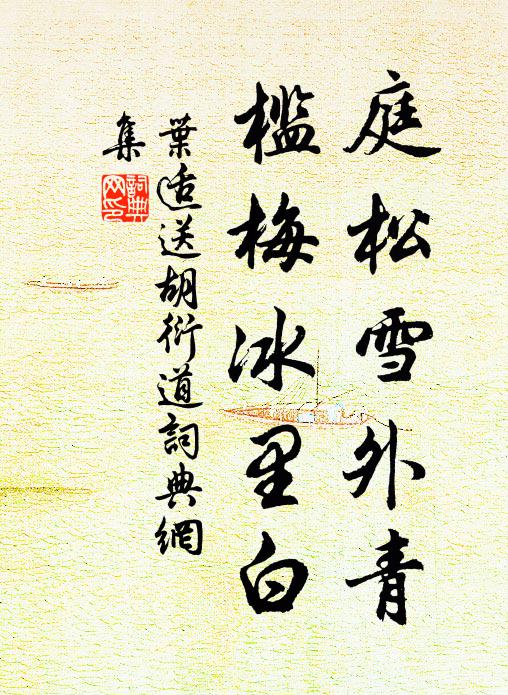 庭松雪外青
槛梅冰里白
葉适送胡衍道詞典網
集
詞典网印